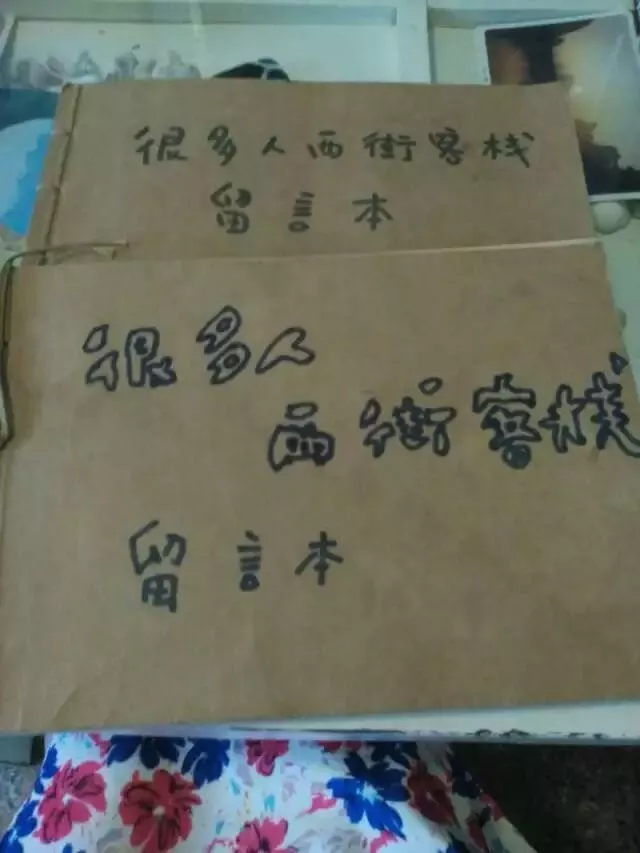 很多人西街客栈
留言本
很多人
西街客栈
留言本